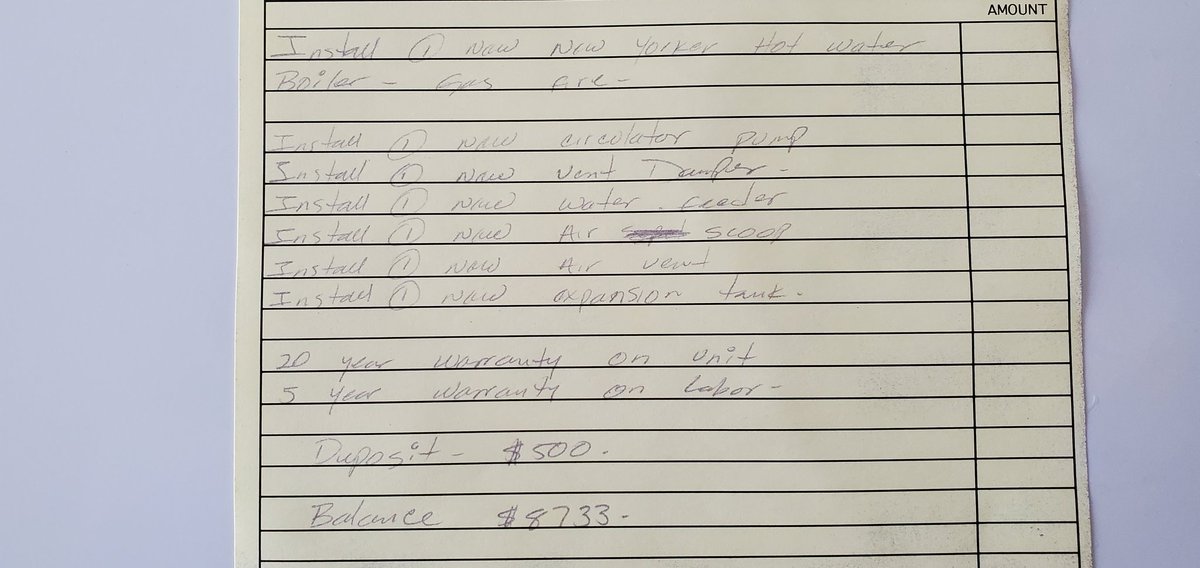 AMOUNT
Install ① New New Yorker Hot water
Boiler - Gas fire -
Install ① New circulator pump
Install ① New vent Damper -
Install ① New water feeder
Install ① New Air scoop
Install ① New Air vent
Install ① New expansion tank.
20 year warranty on unit
5 year warranty on Labor -
Duposit - $500.
Balance $8733 -